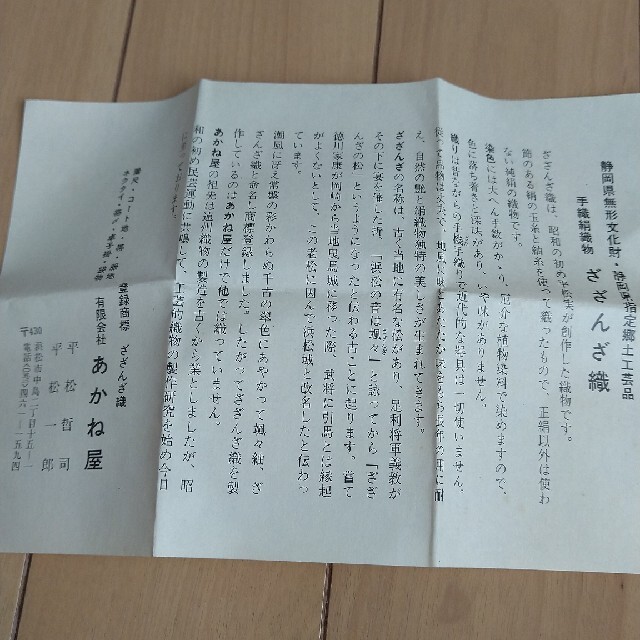 静岡県無形文化財・静岡県指定郷土工芸品
手織絹織物 ざざんざ織
ざざんざ織は、昭和の初め平松実が創作した織物です。
節のある絹の玉糸と紬糸を使って織ったもので、正絹以外は使わ
ない純絹の織物です。
染色には大へん手数がかゝり、厄介な植物染料で染めますので、
色に落ち着きと深味があり、いや味がありません。
織りは昔ながらの手投手織りで近代的な道具は一切使いません。
従って品物は丈夫で、地風に味とあたたか味をもち長年の用に耐
え、自然の艶と絹織物独特の美しさが生まれてきます。
ざざんざの名称は、古く当地に有名な松があり、足利将軍義教が
その下に宴を催した時、「浜松の音はざんざ」と謡ってから「ざざ
んざの松」というようになったと伝わる古ごとに起ります。嘗て
徳川家康が岡崎から当地曳馬城に移った際、武将に引馬とは縁起
がよくないとして、この老松に因んで浜松城と改名したと伝わっ
ています。
潮風に冴え常磐の彩かわらぬ千古の翠色にあやかって颯々織、ざ
ざんざ織と命名し商標登録しました。したがってざざんざ織を製
作しているのはあかね屋だけで他では織っていません。
あかね屋の祖先は遠州織物の製造を古くから業としましたが、昭
和の初め民芸運動に共鳴して、工芸的織物の製作研究を始め今日
に至っております。
登録商標 ざざんざ織
有限会社 あかね屋
平松哲司
平松一郎
〒430 浜松市中島二丁目十五ー一